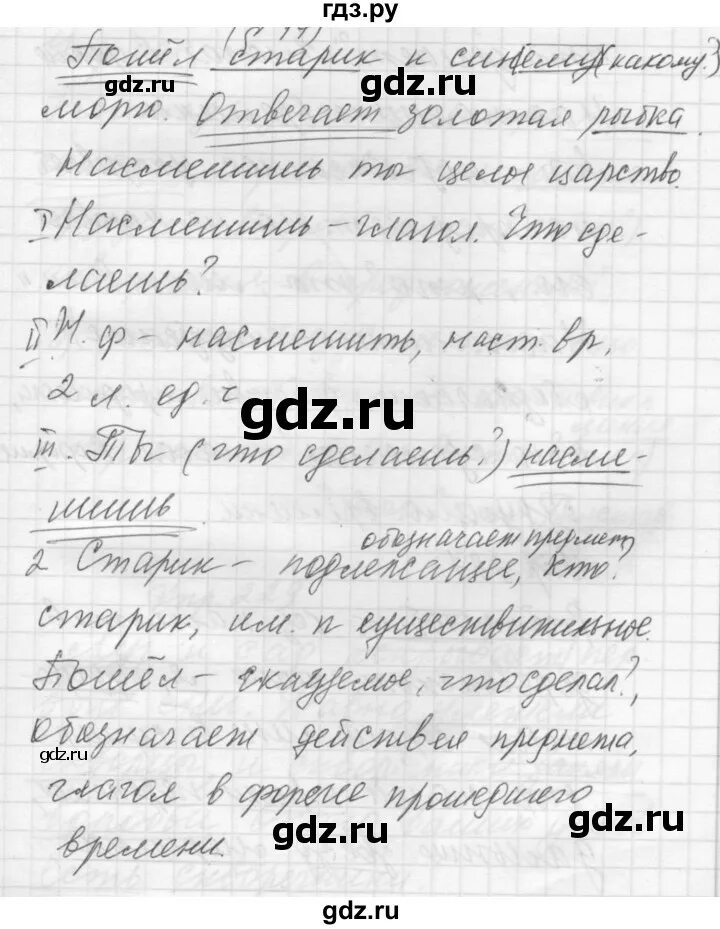 гдз.ру
Пошёл старик к синему (какому?)
gdz.ru gdz.ru
морю. Отвечает золотая рыбка.
Насмешишь ты целое царство.
I Насмешишь – глагол. Что сде-
лаешь?
II Н. ф – насмешить, наст. вр,
2 л. ед. ч
gdz.ru
III. Ты (что сделаешь?) насме-
шишь
обозначает предмет,
2 Старик – подлежащее, кто?
старик, им. п существительное.
Пошёл – сказуемое, что сделал?,
обозначает действея предмета,
gdz.ru
глагол в форме прошедшего
gdz.ru
времени.
gdz.ru